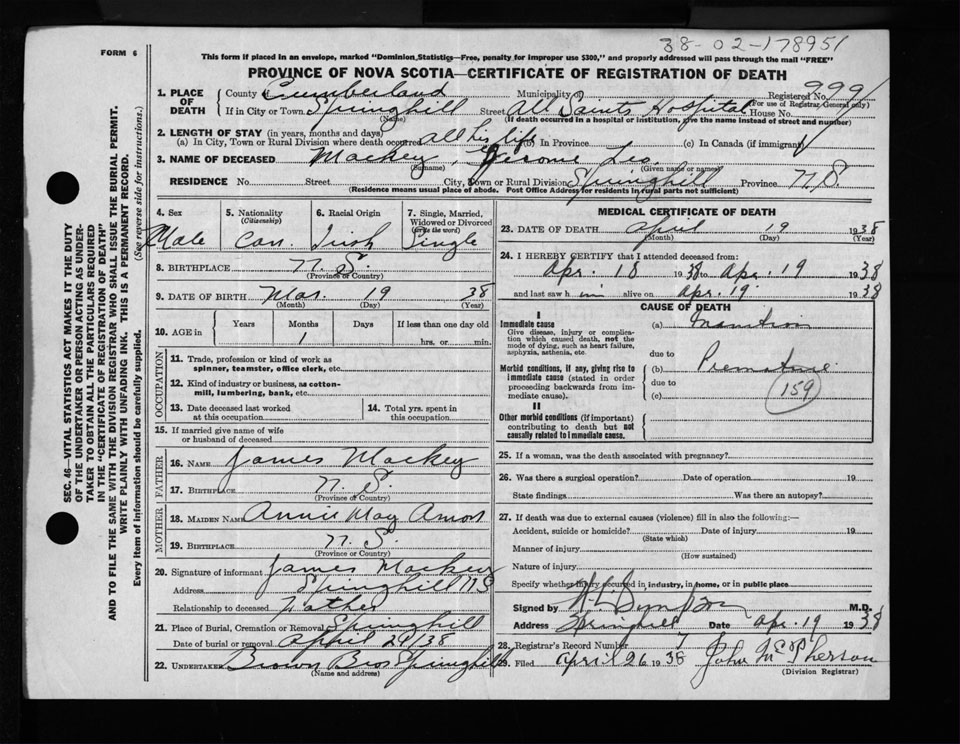 38-02-178951
FORM 6
This form if placed in an envelope, marked "Dominion Statistics—Free, penalty for improper use $300," and properly addressed will pass through the mail "FREE"
PROVINCE OF NOVA SCOTIA—CERTIFICATE OF REGISTRATION OF DEATH
1. PLACE OF DEATH
County of Cumberland Municipality of Registered No. 999
(For use of Registrar General only)
If in City or Town Springhill Street All Saints Hospital House No.
(Name) (If death occurred in a hospital or institution, give the name instead of street and number)
2. LENGTH OF STAY (in years, months and days)
(a) In City, Town or Rural Division where death occurred all his life (b) In Province (c) In Canada (if immigrant)
3. NAME OF DECEASED Mackey, Jerome Leo
(Surname) (Given name or names)
RESIDENCE No. Street City, Town or Rural Division Springhill Province N.S.
(Residence means usual place of abode. Post Office Address for residents in rural parts not sufficient)
4. Sex 5. Nationality (Citizenship) 6. Racial Origin 7. Single, Married, Widowed or Divorced (write the word)
Male Can. Irish Single
8. BIRTHPLACE N.S.
(Province or Country)
9. DATE OF BIRTH Mar. 19 38
(Month) (Day) (Year)
10. AGE in Years Months Days If less than one day old
1 hrs. or min.
OCCUPATION
11. Trade, profession or kind of work as spinner, teamster, office clerk, etc.
12. Kind of industry or business, as cotton-mill, lumbering, bank, etc.
13. Date deceased last worked at this occupation
14. Total yrs. spent in this occupation
15. If married give name of wife or husband of deceased
FATHER
16. NAME James Mackey
17. BIRTHPLACE N.S.
(Province or Country)
MOTHER
18. MAIDEN NAME Annie May Amos
19. BIRTHPLACE N.S.
(Province or Country)
20. Signature of informant James Mackey
Address Springhill NS
Relationship to deceased Father
21. Place of Burial, Cremation or Removal Springhill
Date of burial or removal April 20/38
22. UNDERTAKER Brown Bros Springhill
(Name and address)
MEDICAL CERTIFICATE OF DEATH
23. DATE OF DEATH April 19 1938
(Month) (Day) (Year)
24. I HEREBY CERTIFY that I attended deceased from:
Apr. 18 1938 to Apr. 19 1938
and last saw him alive on Apr. 19 1938
CAUSE OF DEATH
I
Immediate cause
Give disease, injury or complication which caused death, not the mode of dying, such as heart failure, asphyxia, asthenia, etc.
(a) Inanition
due to
Morbid conditions, if any, giving rise to immediate cause (stated in order proceeding backwards from immediate cause).
(b) Premature
due to
(c)
159
II
Other morbid conditions (if important) contributing to death but not causally related to immediate cause.
25. If a woman, was the death associated with pregnancy?
26. Was there a surgical operation? Date of operation 19
State findings Was there an autopsy?
27. If death was due to external causes (violence) fill in also the following:—
Accident, suicide or homicide? Date of injury 19
(State which)
Manner of injury
(How sustained)
Nature of injury
Specify whether injury occurred in industry, in home, or in public place
Signed by M.D.
Address Springhill Date Apr. 19 1938
28. Registrar's Record Number 7
29. Filed April 26 1938 John McPherson
(Division Registrar)
SEC. 46—VITAL STATISTICS ACT MAKES IT THE DUTY
OF THE UNDERTAKER OR PERSON ACTING AS UNDER-
TAKER TO OBTAIN ALL THE PARTICULARS REQUIRED
IN THE "CERTIFICATE OF REGISTRATION OF DEATH"
AND TO FILE THE SAME WITH THE DIVISION REGISTRAR WHO SHALL ISSUE THE BURIAL PERMIT.
WRITE PLAINLY WITH UNFADING INK. THIS IS A PERMANENT RECORD.
Every item of information should be carefully supplied. (See reverse side for instructions.)